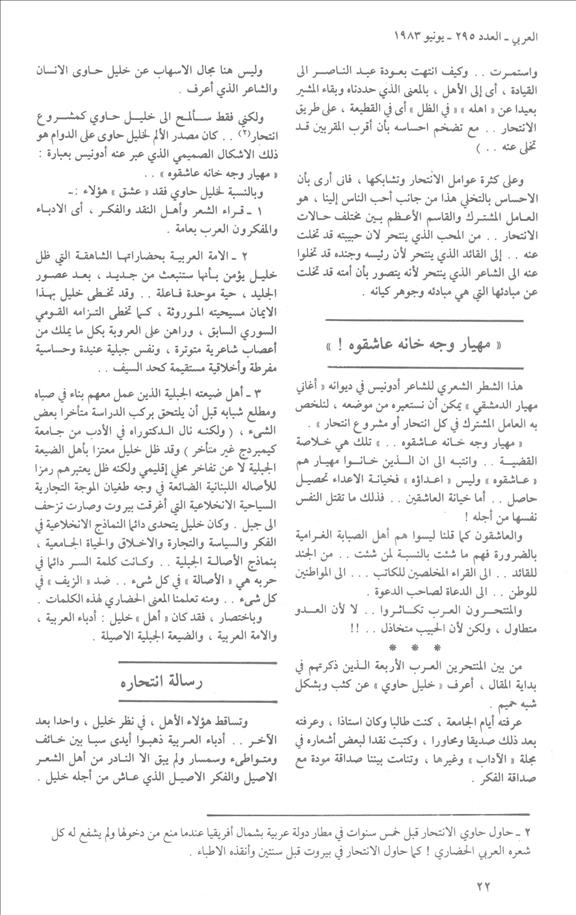 العربي ـ العدد ٢٩٥ ـ يونيو ١٩٨٣
واستمرت . . وكيف انتهت بعودة عبد الناصر الى
القيادة ، أى إلى الأهل ، بالمعنى الذي حددناه وبقاء المشير
بعيدا عن « اهله » « في الظل » أى في القطيعة ، على طريق
الانتحار . . مع تضخم احساسه بأن أقرب المقربين قد
تخلى عنه . . )
وعلى كثرة عوامل الانتحار وتشابكها ، فانى أرى بأن
الاحساس بالتخلي هذا من جانب أحب الناس إلينا ، هو
العامل المشترك والقاسم الأعظم بين مختلف حالات
الانتحار . . من المحب الذي ينتحر لان حبيبته قد تخلت
عنه . . إلى القائد الذي ينتحر لأن رئيسه وجنده قد تخلوا
عنه الى الشاعر الذي ينتحر لأنه يتصور بأن أمته قد تخلت
عن مبادئها التي هي مبادئه وجوهر كيانه .
« مهيار وجه خانه عاشقوه ! »
هذا الشطر الشعري للشاعر أدونيس في ديوانه « أغاني
مهيار الدمشقي » يمكن أن نستعيره من موضعه ، لنلخص
به العامل المشترك في كل انتحار أو مشروع انتحار .
« مهيار وجه خانه عاشقوه . . » تلك هي خلاصة
القضية . . وانتبه الى ان الذين خانوا مهيار هم
« عاشقوه » وليس « اعداؤه » فخيانة الاعداء تحصيل
حاصل . . أما خيانة العاشقين . . فذلك ما تقتل النفس
نفسها من أجله !
والعاشقون كما قلنا ليسوا هم أهل الصبابة الغرامية
بالضرورة فهم ما شئت بالنسبة لمن شئت . . من الجند
للقائد . . الى القراء المخلصين للكاتب . . . الى المواطنين
للوطن . . الى الدعاة لصاحب الدعوة .
والمنتحرون العرب تكاثروا . . لا لأن العدو
متطاول ، ولكن لأن الحبيب متخاذل . . !!
* * *
من بين المنتحرين العرب الأربعة الذين ذكرتهم في
بداية المقال ، أعرف « خليل حاوي » عن كثب وبشكل
شبه حميم .
عرفته أيام الجامعة ، كنت طالبا وكان استاذا ، وعرفته
بعد ذلك صديقا ومحاورا ، وكتبت نقدا لبعض أشعاره في
مجلة « الآداب » وغيرها ، وتنامت بيننا صداقة مودة مع
صداقة الفكر .
وليس هنا مجال الاسهاب عن خليل حاوى الانسان
والشاعر الذي أعرف .
ولكني فقط سألمح الى خليل حاوي كمشروع
انتحار(٢) . . كان مصدر الألم لخليل حاوى على الدوام هو
ذلك الاشكال الصميمي الذي عبر عنه أدونيس بعبارة :
« مهيار وجه خانه عاشقوه » . .
وبالنسبة لخليل حاوي فقد « عشق » هؤلاء :ـ
١ ـ قراء الشعر وأهل النقد والفكر ، أى الادباء
والمفكرون العرب بعامة .
٢ ـ الامة العربية بحضاراتها الشاهقة التي ظل
خليل يؤمن بأنها ستنبعث من جديد ، بعد عصور
الجليد ، حية موحدة فاعلة . . وقد تخطى خليل بهذا
الايمان مسيحيته الموروثة ، كما تخطى التزامه القومي
السوري السابق ، وراهن على العروبة بكل ما يملك من
أعصاب شاعرية متوترة ، ونفس جبلية عنيدة وحساسية
مفرطة وأخلاقية مستقيمة كحد السيف . .
٣ ـ أهل ضيعته الجبلية الذين عمل معهم بناء في صباه
ومطلع شبابه قبل أن يلتحق بركب الدراسة متأخرا بعض
الشىء ، ( ولكنه نال الدكتوراه في الأدب من جامعة
كيمبردج غير متأخر ) وقد ظل خليل معتزا بأهل الضيعة
الجبلية لا عن تفاخر محلي إقليمي ولكنه ظل يعتبرهم رمزا
للأصاله اللبنانية الضائعة في وجه طغيان الموجة التجارية
السياحية الانخلاعية التي أغرقت بيروت وصارت تزحف
الى جبل . وكان خليل يتحدى دائما النماذج الانخلاعية في
الفكر والسياسة والتجارة والاخلاق والحياة الجامعية ،
بنماذج الأصالة الجبلية . . وكانت كلمة السر دائما في
حربه هي « الأصالة » في كل شىء . . ضد « الزيف » في
كل شىء . . ومنه تعلمنا المعنى الحضاري لهذه الكلمات .
وباختصار ، فقد كان « أهل » خليل : أدباء العربية ،
والامة العربية ، والضيعة الجبلية الاصيلة .
رسالة انتحاره
وتساقط هؤلاء الأهل ، في نظر خليل ، واحدا بعد
الآخر . . أدباء العربية ذهبوا أيدى سبا بين خائف
ومتواطىء وسمسار ولم يبق الا النادر من أهل الشعر
الاصيل والفكر الاصيل الذي عاش من أجله خليل .
٢ ـ حاول حاوي الانتحار قبل خمس سنوات في مطار دولة عربية بشمال أفريقيا عندما منع من دخولها ولم يشفع له كل
شعره العربي الحضاري ! كما حاول الانتحار في بيروت قبل سنتين وأنقذه الاطباء .
٢٢